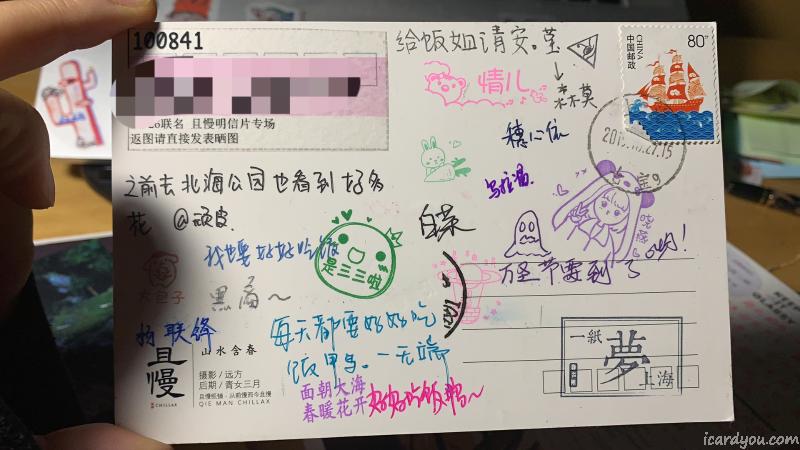 100841
给饭姐请安。茎
中国邮政
CHINA
80分
情儿
森莫
穗心依
联名 且慢明信片专场
返图请直接发表晒图
乌拉酒
之前去北海公园也看到好多
花 @顽皮
白菜
我也要好好吃饭
是三三啦
万圣节要到了
大包子
黑酒~
杨联锋
每天都要好好吃
饭甲鸟。一无端
面朝大海
春暖花开
好好吃饭
且慢
CHILLAX
山水含春
摄影 / 远方
后期 / 青女三月
且慢纸铺·从前慢而今且慢
QIE MAN CHILLAX
一紙
夢
上海
icardyou.com